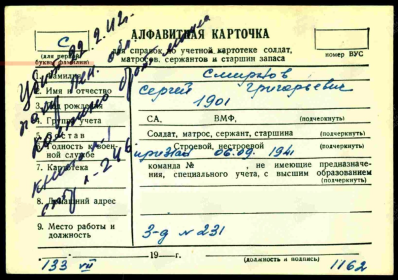 С
АЛФАВИТНАЯ КАРТОЧКА
(для первой буквы фамилии)
для справок до учетной картотеке солдат, матросов, сержантов и старшин запаса
номер ВУС
1. Фамилия Смирнов
2. Имя и отчество Сергей Григорьевич
3. Год рождения 1901
4. Группа учета СА, ВМФ, (подчеркнуть)
5. Состав Солдат, матрос, сержант, старшина (подчеркнуть)
6. Годность к военной службе Строевой, нестроевой (подчеркнуть)
призван 06.09.1941
7. Картотека команда № , не имеющие предназначения, специального учета, с высшим образованием (подчеркнуть)
8. Домашний адрес
9. Место работы и должность З-д № 231
19 г.
(должность и подпись)
133 VII
1162
Убит 22.2.42г.